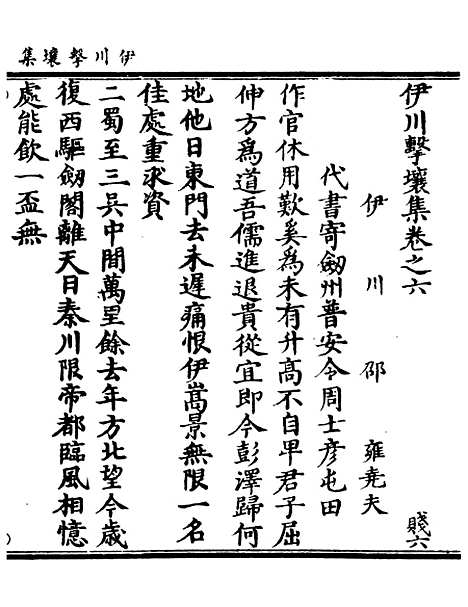 伊川擊壤集
伊川擊壤集卷之六 賤六
伊川 邵 雍堯夫
代書寄劒州普安令周士彥屯田
作官休用歎奚爲未有升高不自卑君子屈
伸方爲道吾儒進退貴從宜即今彭澤歸何
地他日東門去未遲痛恨伊嵩景無限一名
佳處重求資
二蜀至三吳中間萬里餘去年方北望今歲
復西驅劒閣離天日秦川限帝都臨風相憶
處能飲一盃無